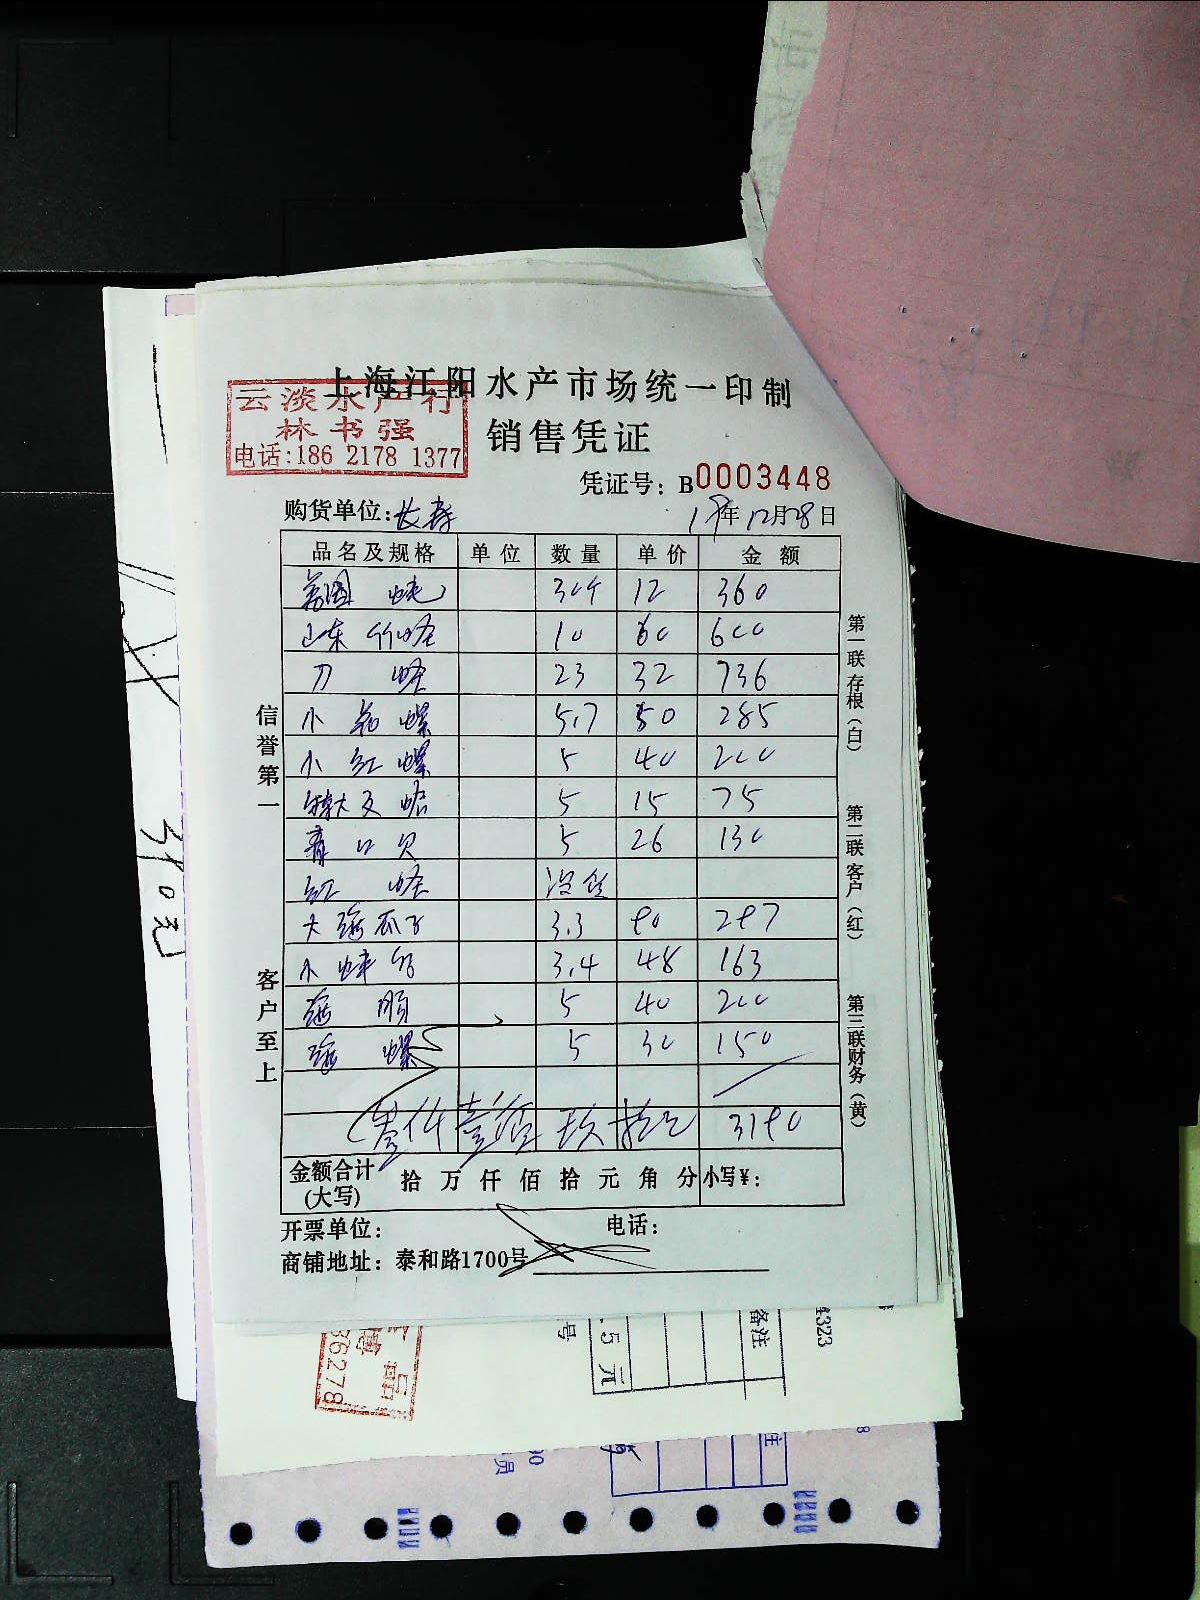 上海江阳水产市场统一印制
云淡水产行
林书强
电话:186 2178 1377
销售凭证
凭证号：B0003448
购货单位:长寿 19年12月28日
品名及规格 单位 数量 单价 金额
12 360
山东竹蛏 10 60 600
刀蛏 23 32 736
小花螺 5.7 50 285
小红螺 5 40 200
5 15 75
青口贝 5 26 130
红蛏 没货
大海瓜子 3.3 90 297
小蚌肉 3.4 48 163
5 40 200
海螺 5 30 150
叁仟壹佰玖拾元 3190
金额合计
(大写) 拾 万 仟 佰 拾 元 角 分 小写￥:
开票单位: 电话:
商铺地址：泰和路1700号
信誉第一
客户至上
第一联存根(白)
第二联客户(红)
第三联财务(黄)
3190元
36278
5元
号
备注
4323